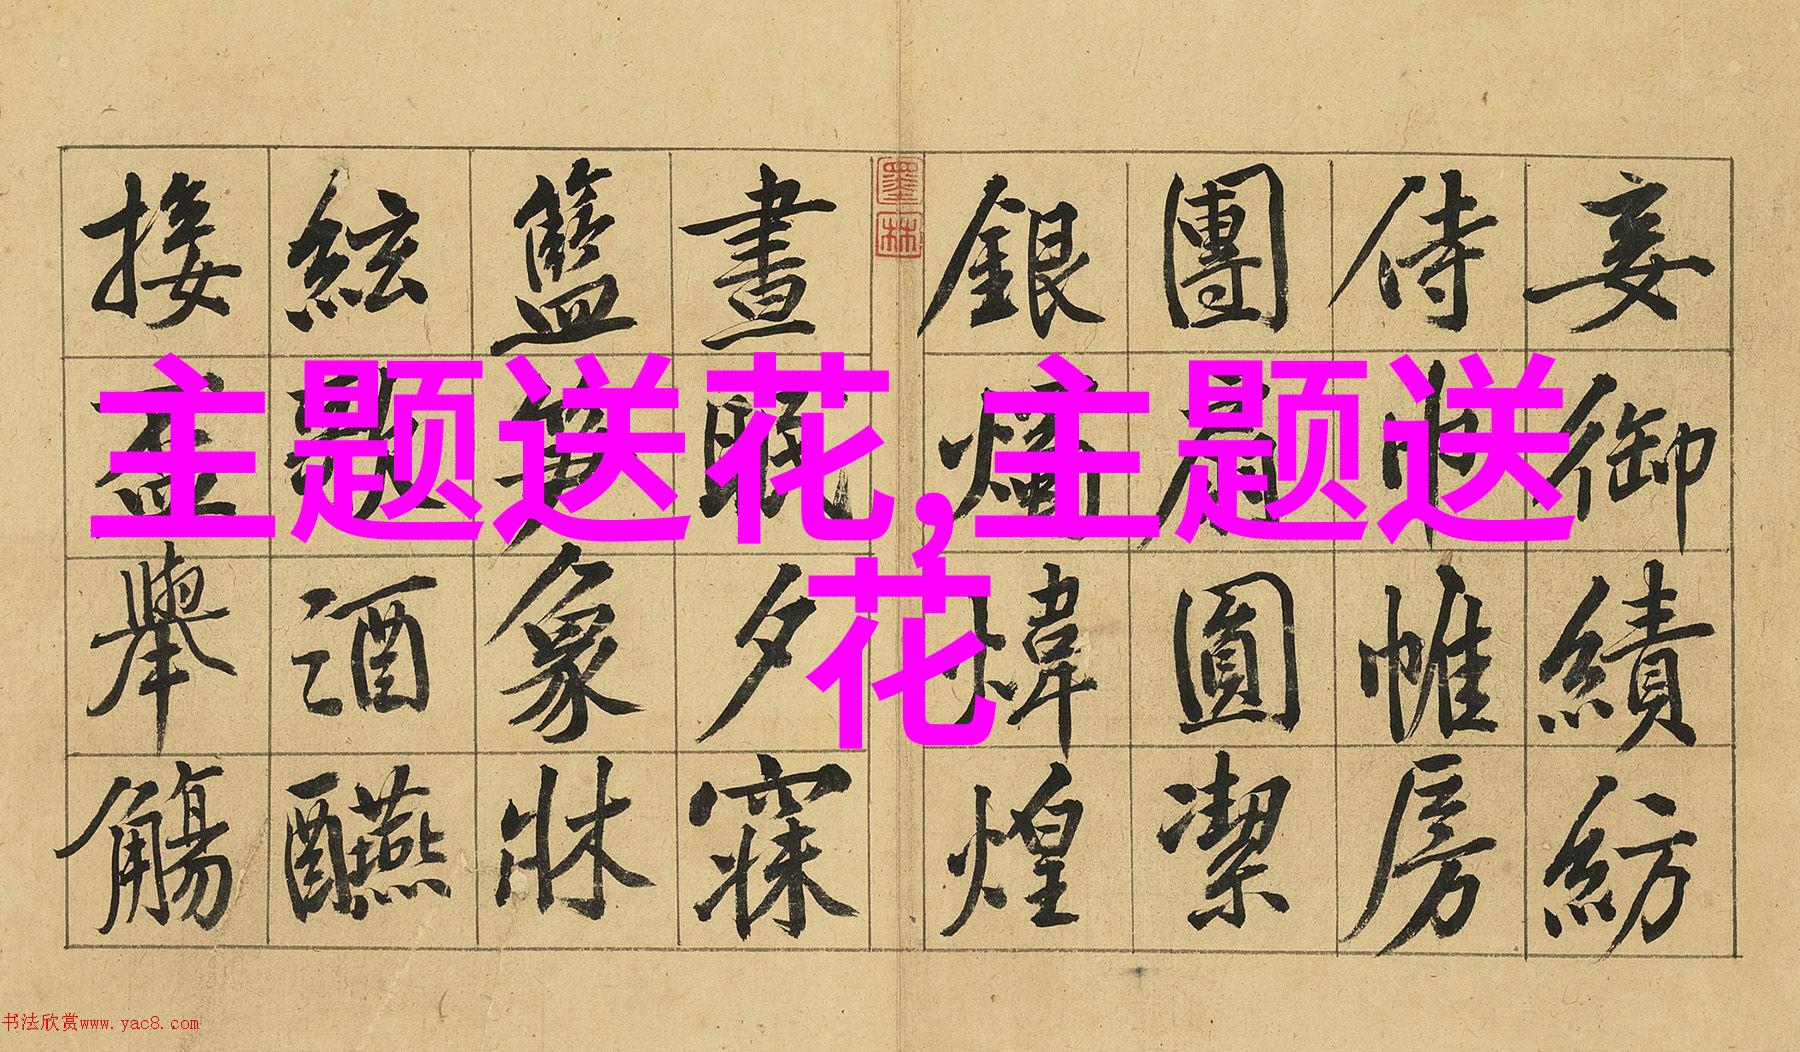 主题送花,主题送
花
妾御績紡
侍巾帷房
團扇圓潔
銀燭煒煌
墨林
晝眠夕寐
籃笋象牀
絃歌酒醼
接盃舉觴
书法欣赏www.yac8.com